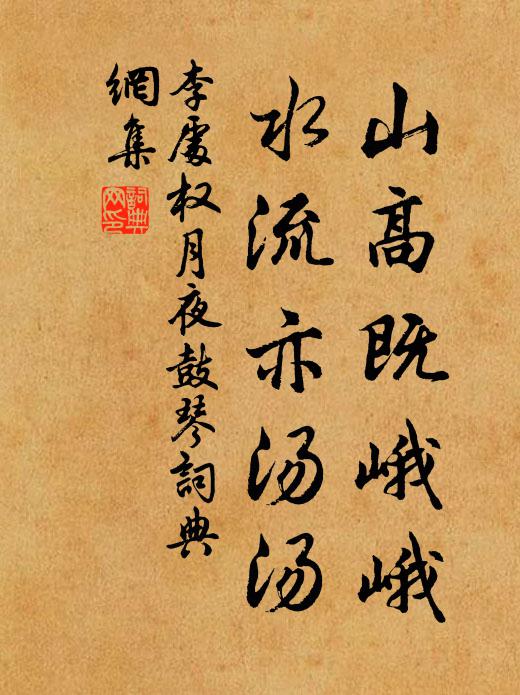 山高既峨峨
水流亦汤汤
李處权月夜鼓琴詞典
網集
詞典
网印